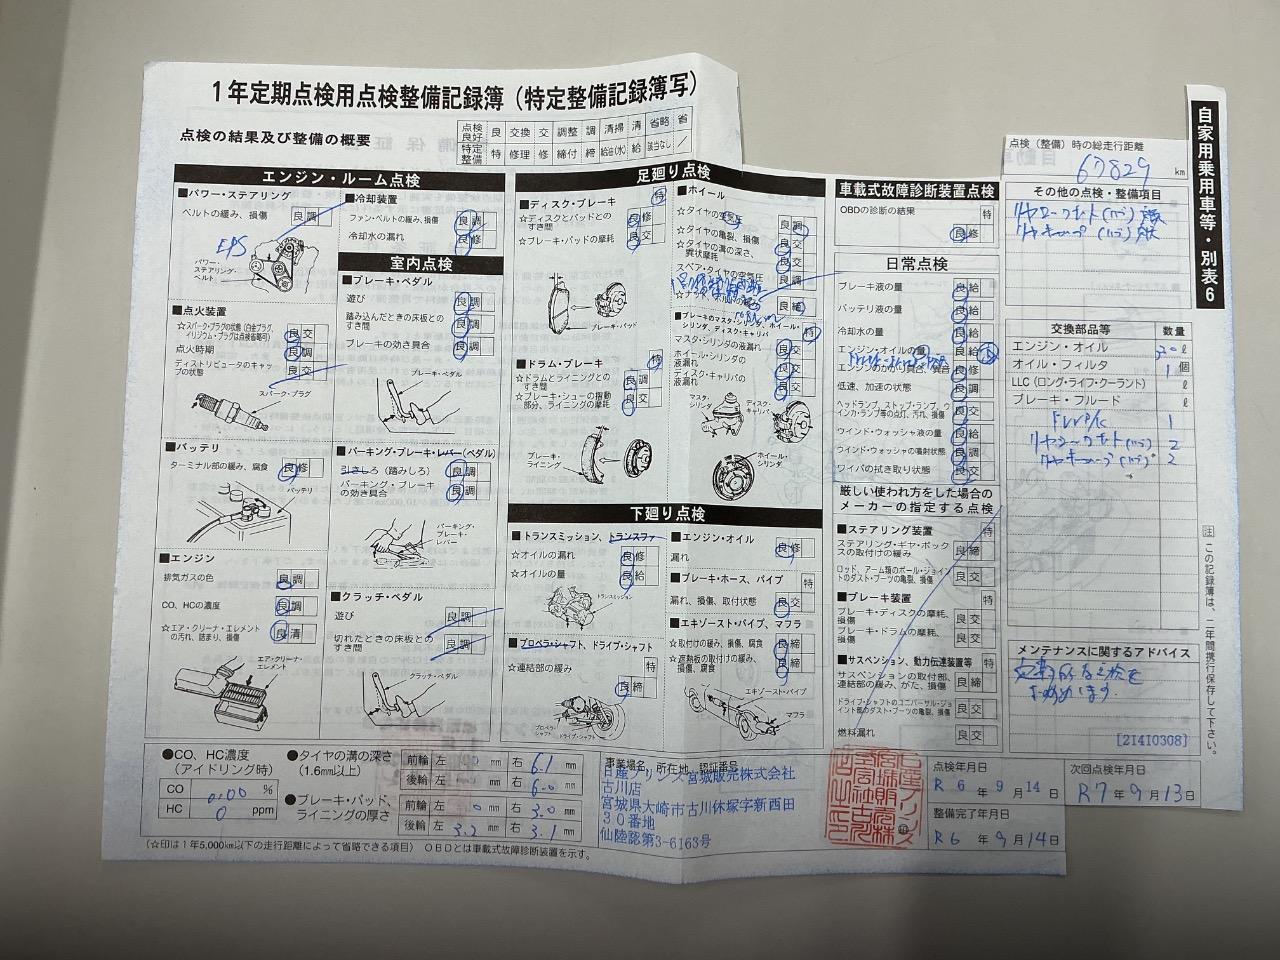 1年定期点検用点検整備記録簿(特定整備記録簿写)
自家用乗用車等・別表6
点検の結果及び整備の概要
点検良好 良 交換 交 調整 調 清掃 清 省略 省
特定整備 特 修理 修 締付 締 給油(水) 給 該当なし /
点検(整備)時の総走行距離
67829 km
エンジン・ルーム点検
■パワー・ステアリング
ベルトの緩み、損傷 良 調
EPS
パワー・ステアリング・ベルト
■冷却装置
ファン・ベルトの緩み、損傷 良 調
冷却水の漏れ 良 修
■点火装置
☆スパーク・プラグの状態(白金プラグ、イリジウム・プラグは点検省略可) 良 交
点火時期 良 調
ディストリビュータのキャップの状態 良 交
スパーク・プラグ
■バッテリ
ターミナル部の緩み、腐食 良 修
バッテリ
■エンジン
排気ガスの色 良 調
CO、HCの濃度 良 調
☆エア・クリーナ・エレメントの汚れ、詰まり、損傷 良 清
エア・クリーナ・エレメント
室内点検
■ブレーキ・ペダル
遊び 良 調
踏み込んだときの床板とのすき間 良 調
ブレーキの効き具合 良 調
ブレーキ・ペダル
■パーキング・ブレーキ・レバー(ペダル)
引きしろ(踏みしろ) 良 調
パーキング・ブレーキの効き具合 良 調
パーキング・ブレーキ・レバー
■クラッチ・ペダル
遊び 良 調
切れたときの床板とのすき間 良 調
クラッチ・ペダル
足廻り点検
■ディスク・ブレーキ 特
☆ディスクとパッドとのすき間 良 修
☆ブレーキ・パッドの摩耗 良 交
ブレーキ・パッド
■ドラム・ブレーキ 特
☆ドラムとライニングとのすき間 良 調
☆ブレーキ・シューの摺動部分、ライニングの摩耗 良 交
ブレーキ・ライニング
■ホイール
☆タイヤの空気圧 良 調
☆タイヤの亀裂、損傷 良 交
☆タイヤの溝の深さ、異状摩耗 良 交
スペア・タイヤの空気圧 良 調
良 締
■ブレーキのマスタ・シリンダ、ホイール・シリンダ、ディスク・キャリパ 特
マスタ・シリンダの液漏れ 良 交
ホイール・シリンダの液漏れ 良 交
ディスク・キャリパの液漏れ 良 調
マスタ・シリンダ
ディスク・キャリパ
ホイール・シリンダ
下廻り点検
■トランスミッション、トランスファ
☆オイルの漏れ 良 修
☆オイルの量 良 給
トランスミッション
■プロペラ・シャフト、ドライブ・シャフト 特
☆連結部の緩み 良 締
プロペラ・シャフト ドライブ・シャフト
■エンジン・オイル
漏れ 良 修
■ブレーキ・ホース、パイプ 特
漏れ、損傷、取付状態 良 交
■エキゾースト・パイプ、マフラ
☆取付けの緩み、損傷、腐食 良 締
☆遮熱板の取付けの緩み、損傷、腐食 良 締
エキゾースト・パイプ
マフラ
車載式故障診断装置点検
OBDの診断の結果 特
良 修
日常点検
ブレーキ液の量 良 給
バッテリ液の量 良 給
冷却水の量 良 給
エンジン・オイルの量 良 給 交
エンジンのかかり具合、異音 良 修
低速、加速の状態 良 調
ヘッドランプ、ストップ・ランプ、ウインカ・ランプ等の点灯、汚れ、損傷 良 交
ウインド・ウォッシャ液の量 良 給
ウインド・ウォッシャの噴射状態 良 調
ワイパの拭き取り状態 良 交
厳しい使われ方をした場合のメーカーの指定する点検
■ステアリング装置 特
ステアリング・ギヤ・ボックスの取付けの緩み 良 締
ロッド、アーム類のボール・ジョイントのダスト・ブーツの亀裂、損傷 良 交
■ブレーキ装置 特
ブレーキ・ディスクの摩耗、損傷 良 交
ブレーキ・ドラムの摩耗、損傷 良 交
■サスペンション、動力伝達装置等 特
サスペンションの取付部、連結部の緩み、がた、損傷 良 締
ドライブ・シャフトのユニバーサル・ジョイント部のダスト・ブーツの亀裂、損傷 良 交
燃料漏れ 良 交
その他の点検・整備項目
交換部品等 数量
エンジン・オイル 3.0 ℓ
オイル・フィルタ 1 個
LLC(ロング・ライフ・クーラント) ℓ
ブレーキ・フルード ℓ
1
2
2
メンテナンスに関するアドバイス
定期的な点検を
おすすめします
[2I4I0308]
注 この記録簿は、二年間携行保存して下さい。
●CO、HC濃度(アイドリング時)
CO 0.00 %
HC 0 ppm
●タイヤの溝の深さ(1.6mm以上)
前輪 左 mm 右 6.1 mm
後輪 左 mm 右 6.0 mm
●ブレーキ・パッド、ライニングの厚さ
前輪 左 mm 右 3.0 mm
後輪 左 3.2 mm 右 3.1 mm
事業場名、所在地、認証番号
日産プリンス宮城販売株式会社
古川店
宮城県大崎市古川休塚字新西田
30番地
仙陸認第3-6163号
点検年月日
R 6 年 9 月 14 日
次回点検年月日
R 7 年 9 月 13 日
整備完了年月日
R 6 年 9 月 14 日
(☆印は1年5,000km以下の走行距離によって省略できる項目) OBDとは車載式故障診断装置を示す。